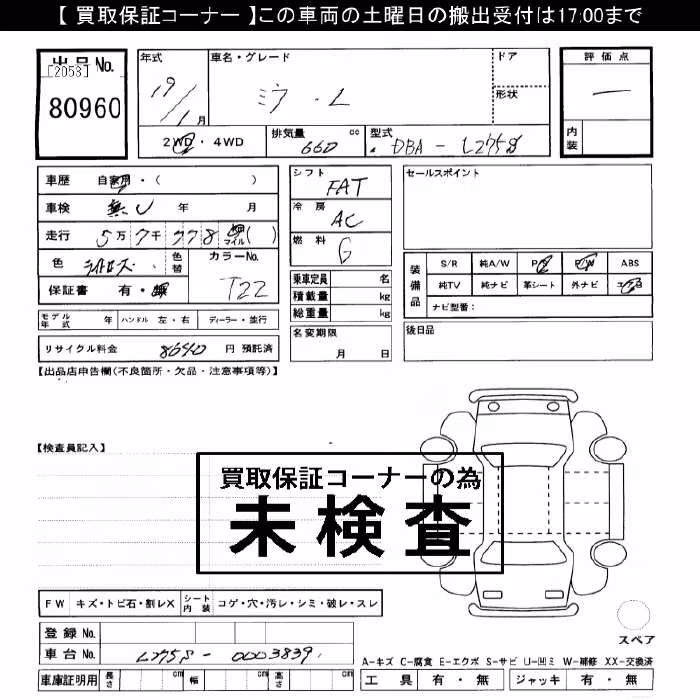 【 買取保証コーナー 】この車両の土曜日の搬出受付は17:00まで
出品No.
[2053]
80960
年式
19/1月
車名・グレード
ミラ . L
ドア
形状
評価点
—
内装
2WD・4WD
排気量 660 cc
型式 DBA - L275S
車歴 自家用・( )
車検 無し 年 月
走行 5万7千778 km マイル ( )
色 ライトローズ. 色替
カラーNo. T22
保証書 有・無
シフト FAT
冷房 AC
燃料 G
セールスポイント
乗車定員 名
積載量 kg
総重量 kg
装備品
S/R 純A/W P/S P/W ABS
純TV 純ナビ 革シート 外ナビ エアB
ナビ型番:
モデル年式 年 ハンドル 左・右 ディーラー・並行
名変期限 月 日
後日品
リサイクル料金 8640 円 預託済
【出品店申告欄(不良箇所・欠品・注意事項等)】
【検査員記入】
買取保証コーナーの為
未検査
FW キズ・トビ石・割レX シート内装 コゲ・穴・汚レ・シミ・破レ・スレ
登録 No.
車台 No. L275S - 0003839
スペア
A-キズ C-腐食 E-エクボ S-サビ U-凹ミ W-補修 XX-交換済
車庫証明用 長さ cm 幅 cm 高さ cm
工具 有・無 ジャッキ 有・無